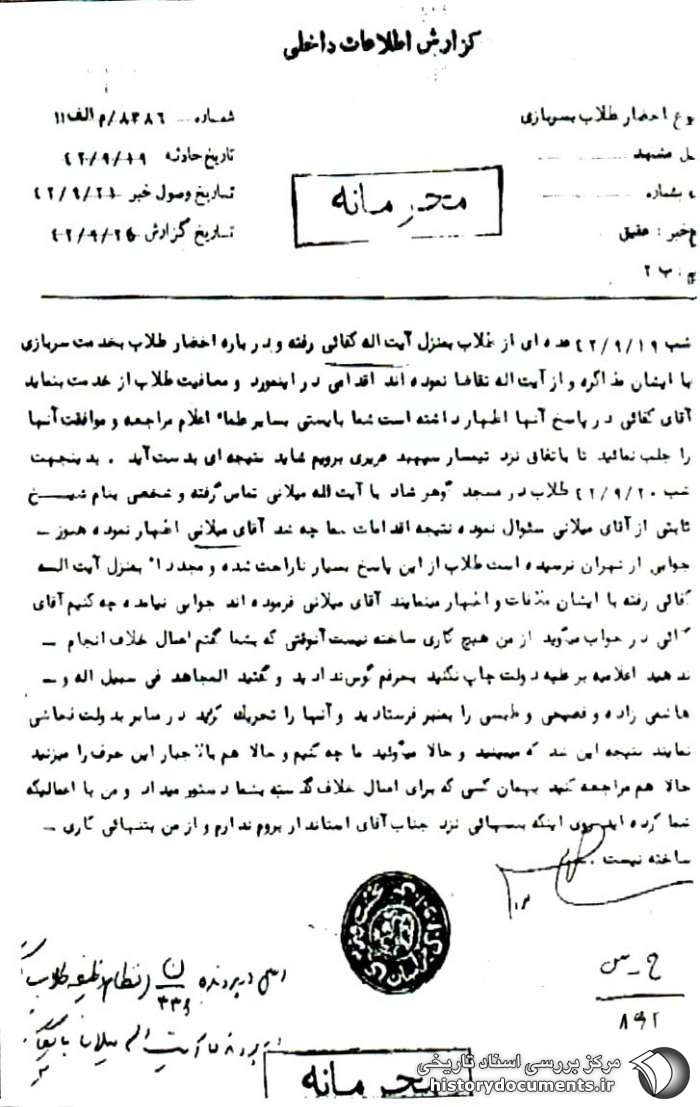 گزارش اطلاعات داخلی
وع احضار طلاب بسربازی
شماره ۸۳۸۶/م الف ۱۱
ل مشهد
تاریخ حادثه ۴۲/۹/۱۹
ه بشماره
تاریخ وصول خبر ۴۲/۹/۲۱
ع خبر : حقیق
تاریخ گزارش ۴۲/۹/۲۶
ب ۲
محرمانه
شب ۴۲/۹/۱۹ عده ای از طلاب بمنزل آیت اله کفائی رفته و در باره احضار طلاب بخدمت سربازی
با ایشان مذاکره و از آیت اله تقاضا نموده اند اقدامی در اینمورد و معافیت طلاب از خدمت بنماید
آقای کفائی در پاسخ آنها اظهار داشته است شما بایستی بسایر علماء اعلام مراجعه و موافقت آنها
را جلب نمائید تا باتفاق نزد تیمسار سپهبد عزیزی برویم شاید نتیجه ای بدست آید . بدینجهت
شب ۴۲/۹/۲۰ طلاب در مسجد گوهر شاد با آیت اله میلانی تماس گرفته و شخصی بنام شیخ
ثابتی از آقای میلانی سئوال نموده نتیجه اقدامات شما چه شد آقای میلانی اظهار نموده هنوز ــ
جوابی از تهران نرسیده است طلاب از این پاسخ بسیار ناراحت شده و مجدداً بمنزل آیت اله
کفائی رفته با ایشان ملاقات و اظهار مینمایند آقای میلانی فرموده اند جوابی نیامده چه کنیم آقای
کفائی در جواب میگوید از من هیچ کاری ساخته نیست آنوقتی که بشما گفتم اعمال خلاف انجام ــ
ندهید اعلامیه بر علیه دولت چاپ نکنید بحرفم گوش ندادید و گفتید المجاهد فی سبیل اله و ــ
هاشمی زاده و فصیحی و طبسی را بمنبر فرستادید و آنها را تحریک کردید در منابر بدولت فحاشی
نمایند نتیجه این شد که میبینید و حالا میگوئید ما چه کنیم و حالا هم بالاجبار این حرف را میزنید
حالا هم مراجعه کنید بهمان کسی که برای اعمال خلاف گذشته بشما دستور میداد و من با اعمالیکه
شما کرده اید روی اینکه بتنهائی نزد جناب آقای استاندار بروم ندارم و از من بتنهائی کاری ــ
ساخته نیست .
ح ــ س
۸۹۲
اصل در پرونده ن/۳۳۶ (نظام وظیفه طلاب)
محرمانه
مرکز بررسی اسناد تاریخی
historydocuments.ir